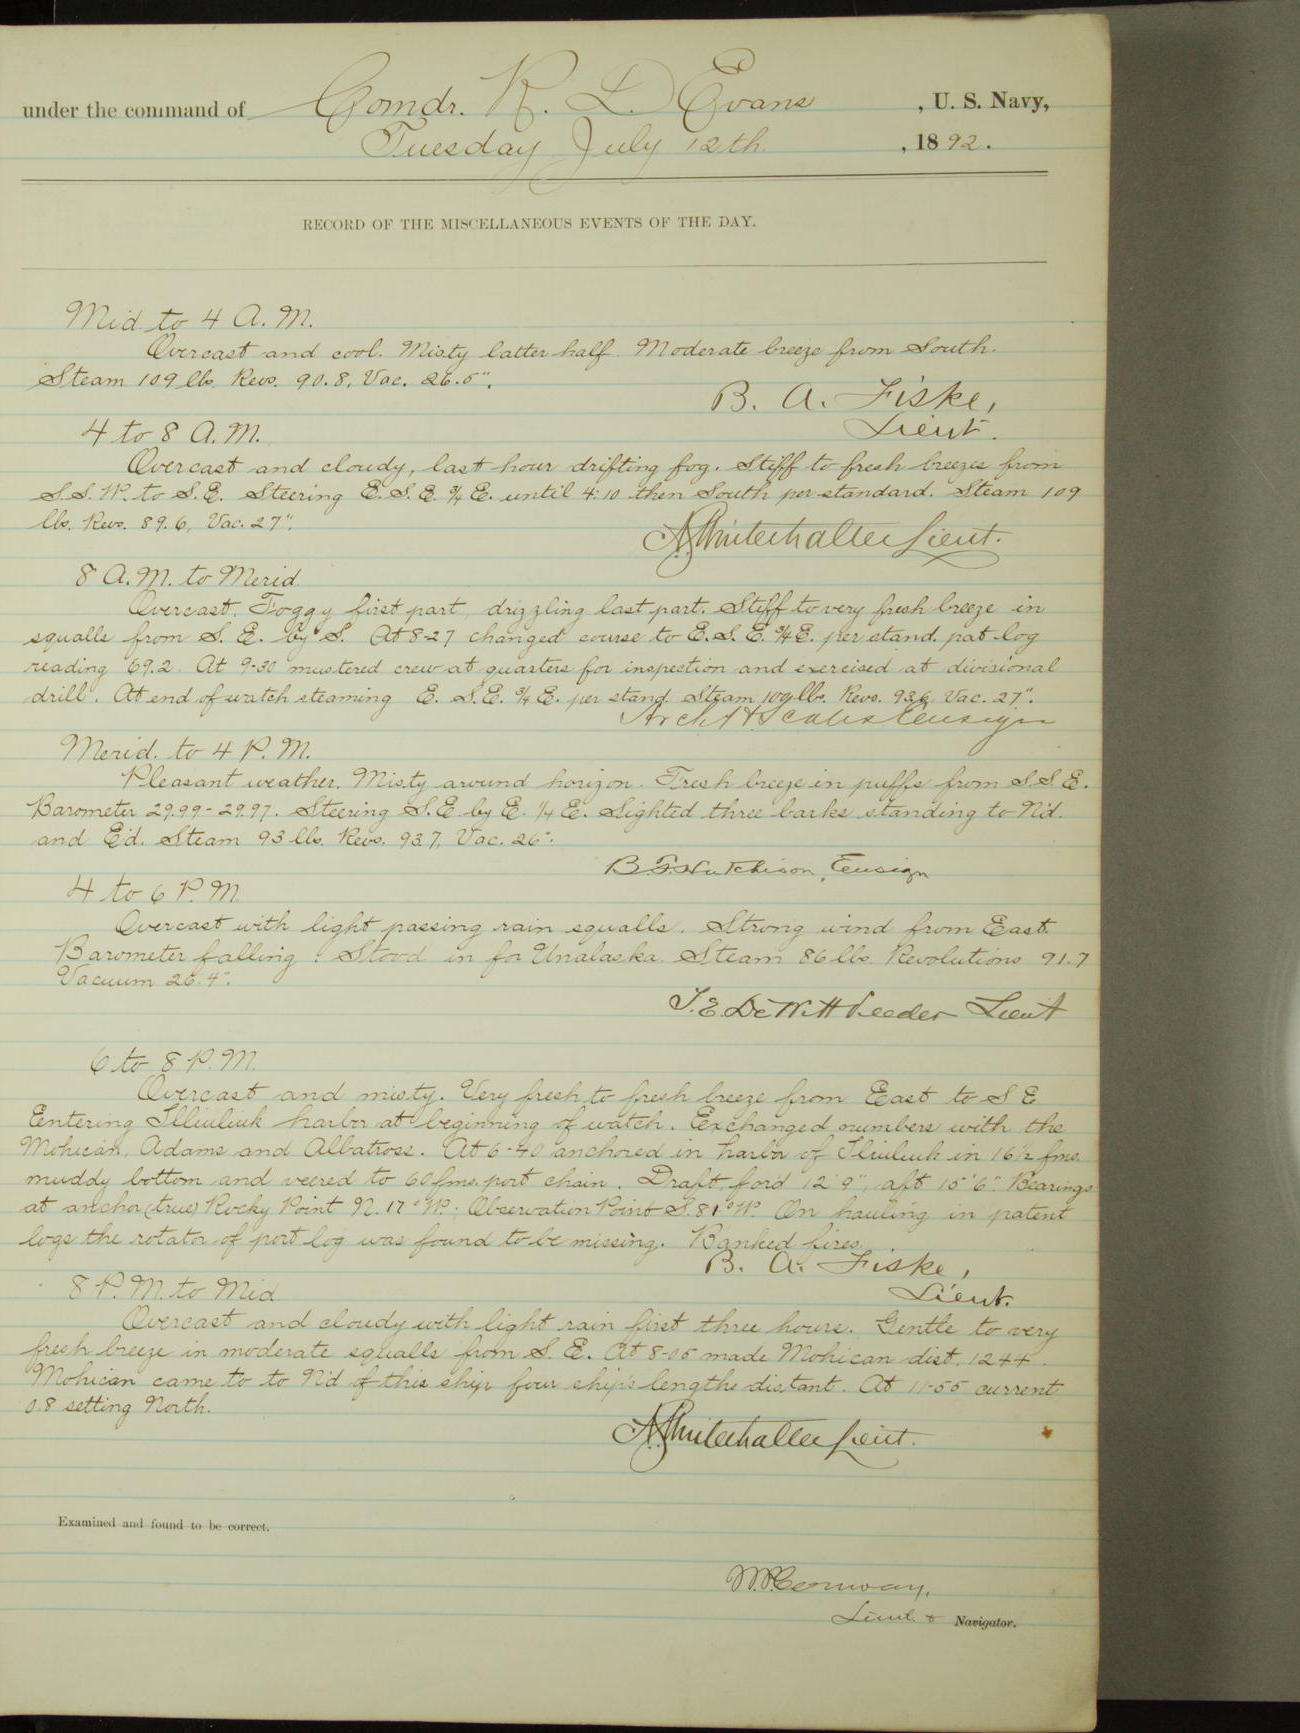 under the command of Comdr. R. D. Evans , U. S. Navy,
Tuesday July 12th , 1892.
RECORD OF THE MISCELLANEOUS EVENTS OF THE DAY.
Mid to 4 A. M.
Overcast and cool. Misty latter half. Moderate breeze from South.
Steam 109 lbs. Revs. 90.8, Vac. 26.5".
B. A. Fiske,
Lieut.
4 to 8 A. M.
Overcast and cloudy, last hour drifting fog. Stiff to fresh breezes from
S.S.W. to S.E. Steering E.S.E. ¾ E. until 4:10 then South per standard. Steam 109
lbs. Revs. 89.6, Vac. 27".
A G Winterhalter Lieut.
8 A. M. to Merid
Overcast. Foggy first part, drizzling last part. Stiff to very fresh breeze in
squalls from S. E. by S. At 8-27 changed course to E. S. E. ¾ E. per stand. pat log
reading 69.2. At 9-30 mustered crew at quarters for inspection and exercised at divisional
drill. At end of watch steaming E. S. E. ¾ E. per stand. Steam 109 lbs. Revs. 93.6 Vac. 27".
Arch H Scales Ensign
Merid. to 4 P. M.
Pleasant weather. Misty around horizon. Fresh breeze in puffs from S S E.
Barometer 29.99 - 29.97. Steering S. E. by E. ¼ E. Sighted three barks standing to N'd.
and E'd. Steam 93 lbs. Revs. 93.7, Vac. 26".
B F Hutchison, Ensign
4 to 6 P. M.
Overcast with light passing rain squalls. Strong wind from East.
Barometer falling. Stood in for Unalaska. Steam 86 lbs. Revolutions 91.7
Vacuum 26.4".
T. E. DeWitt Veeder Lieut
6 to 8 P. M.
Overcast and misty. Very fresh to fresh breeze from East to S E
Entering Illiuliuk harbor at beginning of watch. Exchanged numbers with the
Mohican, Adams and Albatross. At 6-40 anchored in harbor of Iliuliuk in 16½ fms.
muddy bottom and veered to 60 fms. port chain. Draft, for'd 12' 9", aft 15' 6". Bearings
at anchor (true) Rocky Point N. 17° W.; Observation Point S. 81° W. On hauling in patent
logs the rotator of port log was found to be missing. Banked fires.
B. A. Fiske,
Lieut.
8 P. M. to Mid
Overcast and cloudy with light rain first three hours. Gentle to very
fresh breeze in moderate squalls from S. E. At 8-05 made Mohican dist. 1244.
Mohican came to to N'd of this ship four ship's lengths distant. At 11-55 current
0.8 setting North.
A G Winterhalter Lieut.
Examined and found to be correct.
W. P. Conway,
Lieut. & Navigator.